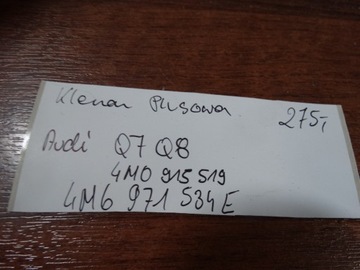 Klema Plusowa 275,-
Audi Q7 Q8
4M0 915 519
4M6 971 534E